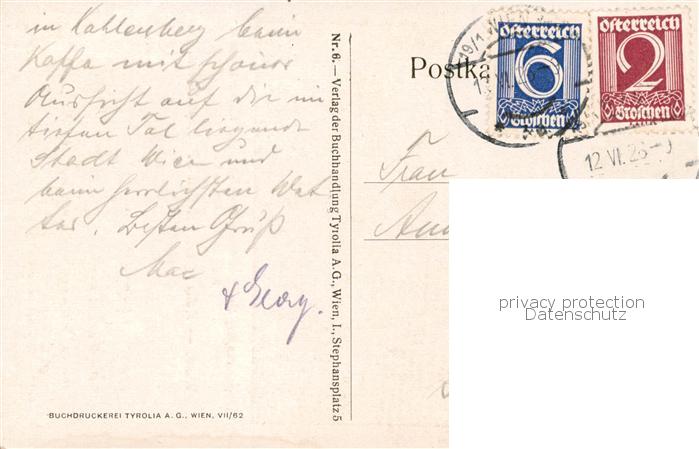 in Kahlenberg beim
Kaffe mit schöner
Aussicht auf die im
tiefen Tal liegende
Stadt Wien und
beim herrlichsten Wet
ter. Besten Gruß
Max
& Georg.
BUCHDRUCKEREI TYROLIA A. G., WIEN, VII/62
Nr. 6. — Verlag der Buchhandlung Tyrolia A. G., Wien, I., Stephansplatz 5
Postka
Österreich
6
Groschen
Österreich
2
Groschen
12 VI. 26
Frau
privacy protection
Datenschutz